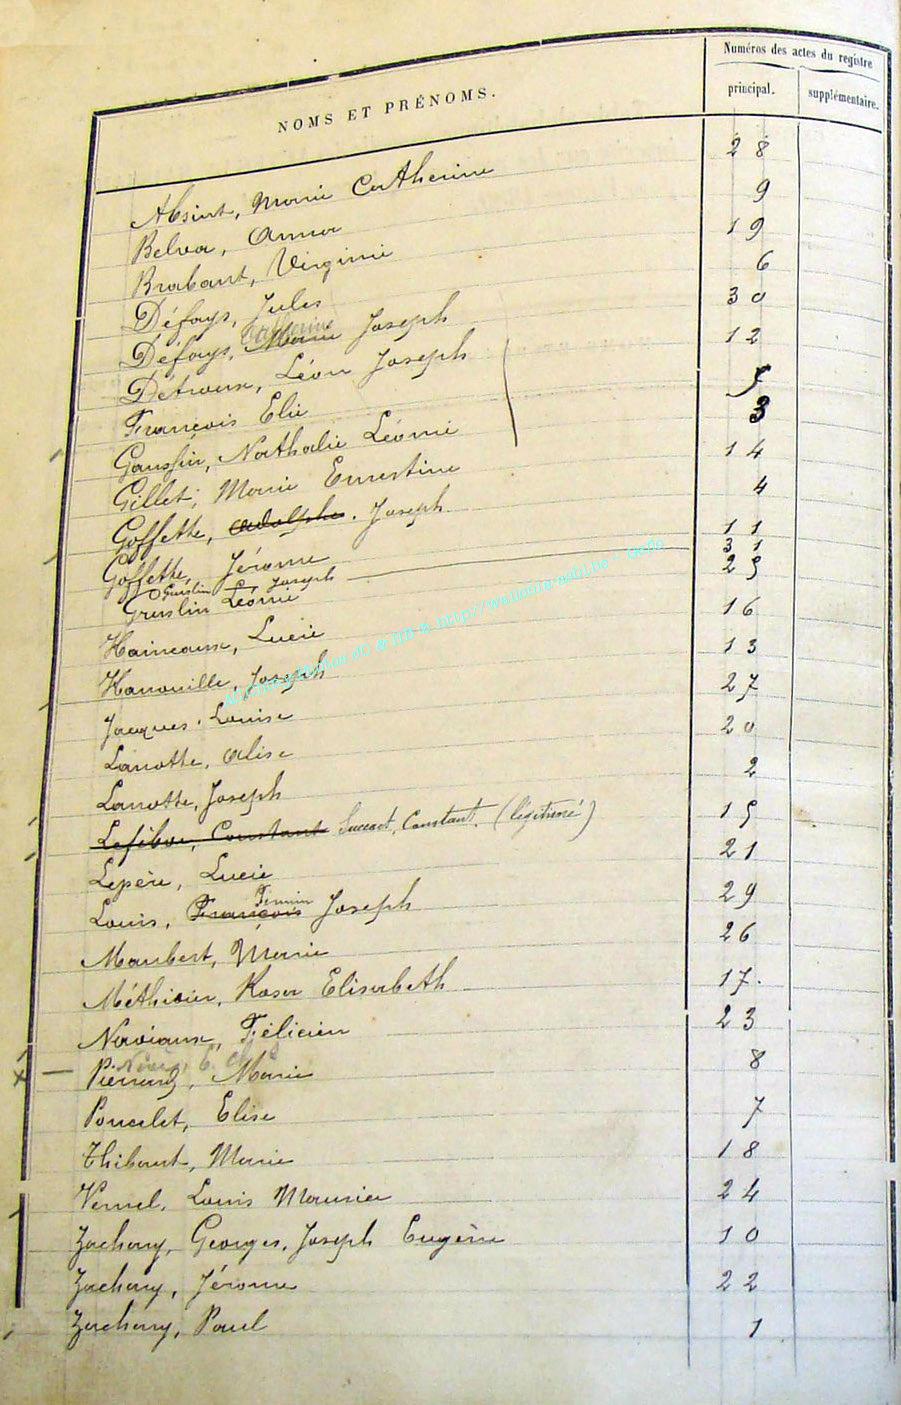 NOMS ET PRÉNOMS.
Numéros des actes du registre
principal. supplémentaire.
Absint, Marie Catherine 28
Belva, Anna 9
Brabant, Virginie 19
Défays, Jules 6
Catherine
Défays, Marie Joseph 30
Détroux, Léon Joseph 12
François Elie 5
Gaussin, Nathalie Léonie 3
Gillet, Marie Ernestine 14
Goffette, Adolphe. Joseph 4
Goffette, Jérome 11
Gruslin Joseph 31
Gruslin Léonie 25
Haineaux, Lucie 16
Hanouille, Joseph 13
Jacques, Louise 27
Lamotte, Alise 20
Lamotte, Joseph 2
Lefèbve, Constant Constant. (légitimé) 15
Lepère, Lucie 21
Firmin
Louis, François Joseph 29
Maubert, Marie 26
Méthivier, Rosa Elisabeth 17.
Naviaux, Félicien 23
Pierrard, Marie 8
Poncelet, Elise 7
Thibaut, Marie 18
Vernel, Louis Maurice 24
Zachary, Georges, Joseph Eugène 10
Zachary, Jérome 22
Zachary, Paul 1